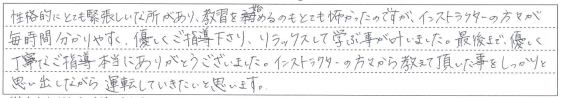 性格的にとても緊張しいな所があり、教習を務めるのもとても怖かったのですが、インストラクターの方々が
毎時間分かりやすく、優しくご指導下さり、リラックスして学ぶ事が叶いました。最後まで、優しく
丁寧なご指導本当にありがとうございました。インストラクターの方々から教えて頂いた事をしっかりと
思い出しながら運転していきたいと思います。